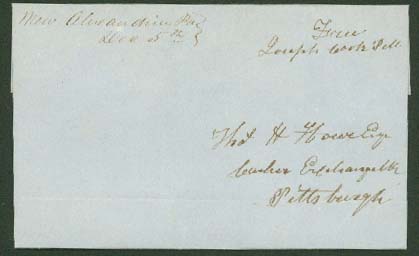 New Alexandria Pa
Dec 5th
Free
Joseph Cook P M
Thos H Howe Esq
Cashier Exchange Bk
Pittsburgh